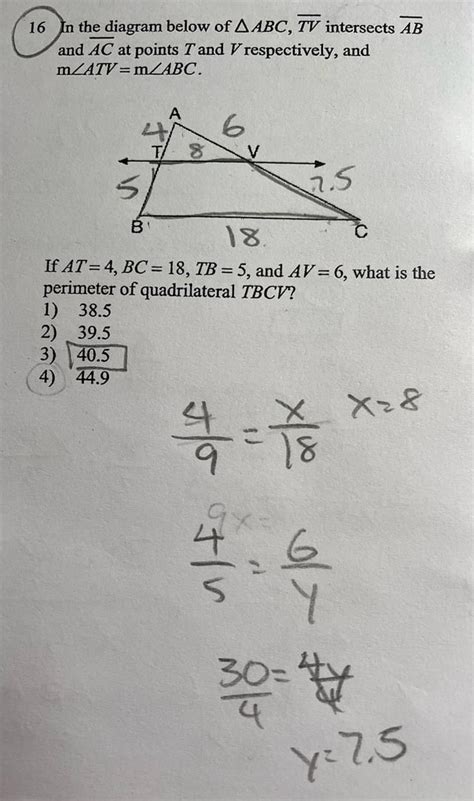 16 In the diagram below of △ABC, TV intersects AB
and AC at points T and V respectively, and
m∠ATV = m∠ABC.
A
4
6
T
8
V
5
7.5
B
18
C
If AT = 4, BC = 18, TB = 5, and AV = 6, what is the
perimeter of quadrilateral TBCV?
1) 38.5
2) 39.5
3) 40.5
4) 44.9
4/9 = x/18 x=8
9x=
4/5 = 6/y
30/4 = 4y/4
y=7.5